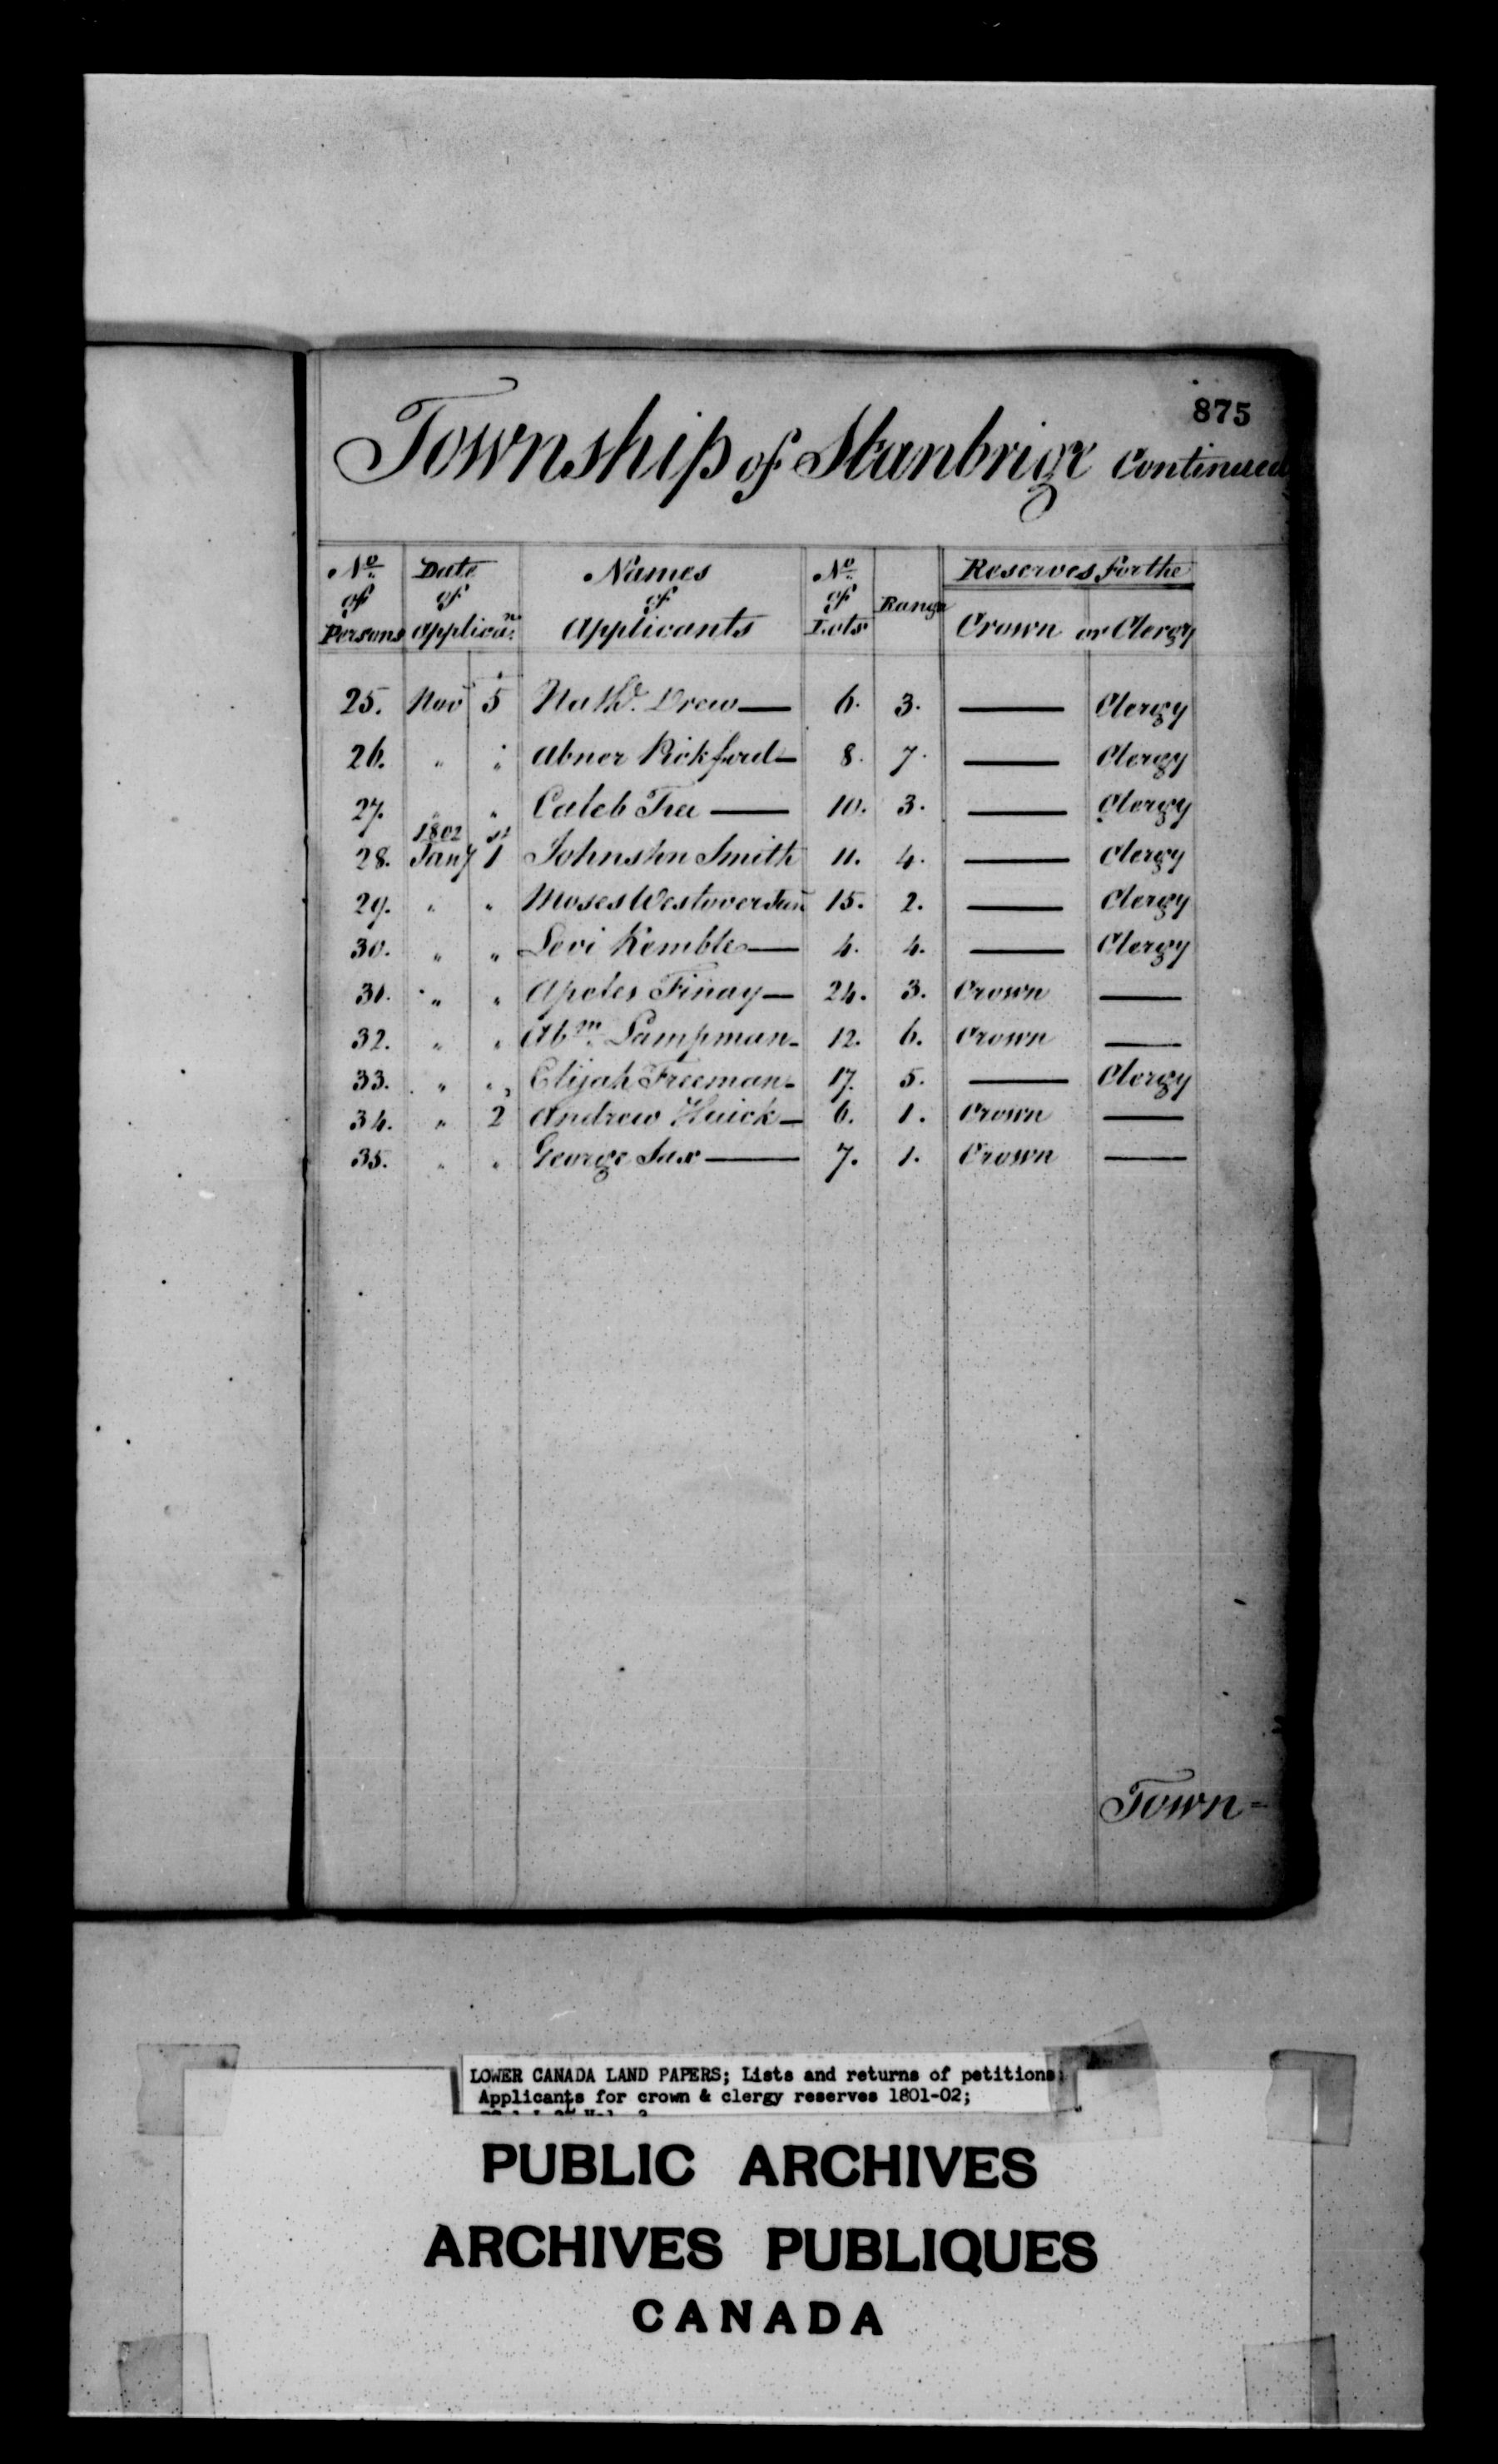 875
Township of Stanbrige Continued
No of Persons | Date of Applican. | Names of Applicants | No of Lots | Range | Reserves for the Crown or Clergy
25. Nov 5 Nathl. Drew — 6. 3. — Clergy
26. " " Abner Rickford — 8. 7. — Clergy
27. " " Caleb Tree — 10. 3. — Clergy
1802 st
28. Jany 1 Johnston Smith 11. 4. — Clergy
29. " " Moses Westover Jun 15. 2. — Clergy
30. " " Levi Kemble — 4. 4. — Clergy
31. " " — 24. 3. Crown —
32. " " Abm. Lampman - 12. 6. Crown —
33. " " Elijah Freeman - 17. 5. — Clergy
34. " 2 Andrew Huick — 6. 1. Crown —
35. " " George Sax — 7. 1. Crown —
Town=
LOWER CANADA LAND PAPERS; Lists and returns of petitions;
Applicants for crown & clergy reserves 1801-02;
PUBLIC ARCHIVES
ARCHIVES PUBLIQUES
CANADA